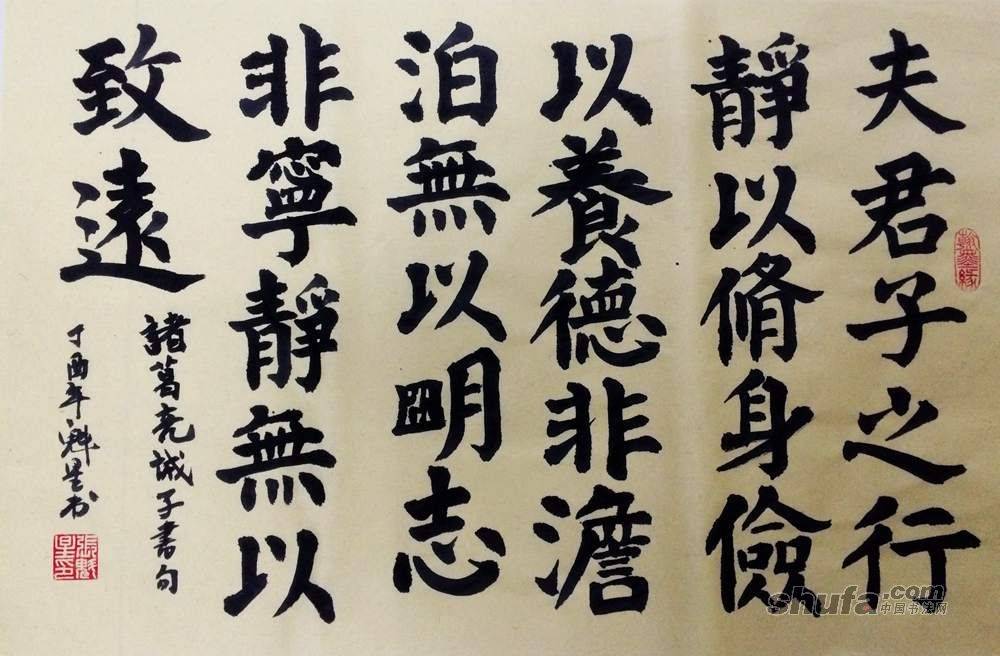 夫君子之行
靜以脩身儉
以養德非澹
泊無以明志
非寧靜無以
致遠
諸葛亮誡子書句
丁酉年魁星书
翰墨缘
張魁星印
shufa.com
中国书法网